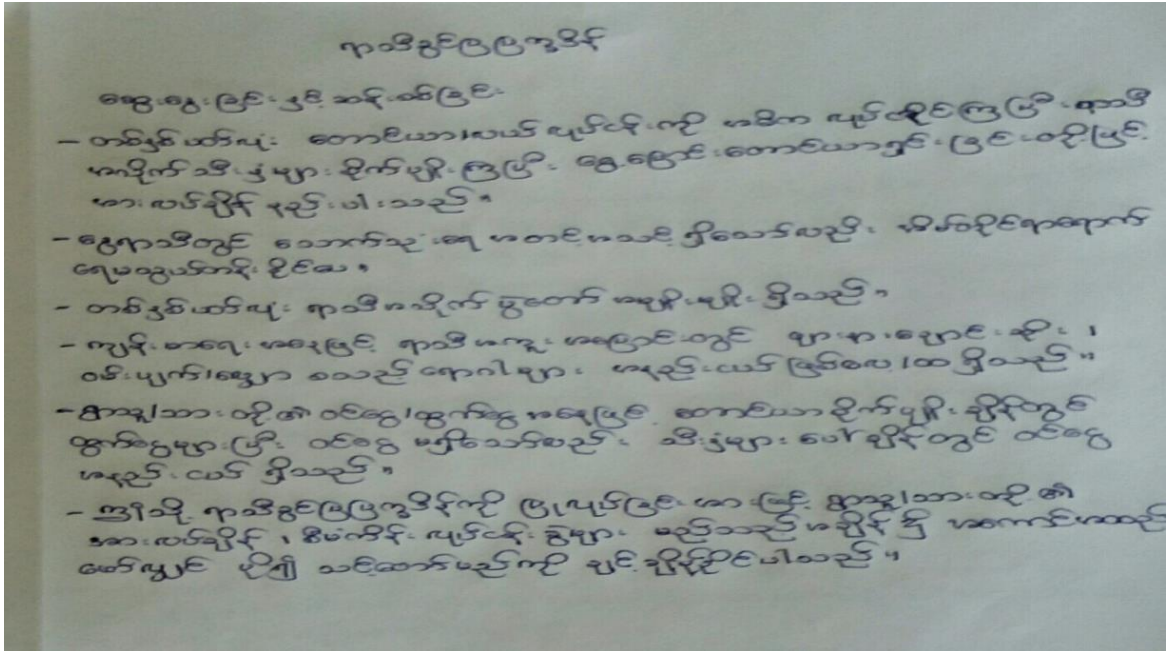 ရာသီခွင်ပြပြက္ခဒိန်
ဆွေးနွေးခြင်းနှင့် ဆန်းစစ်ခြင်း
- တစ်နှစ်ပတ်လုံး တောင်ယာ/လယ် လုပ်ငန်းကို အဓိက လုပ်ကိုင်ကြပြီး ရာသီ
အလိုက် သီးနှံများ စိုက်ပျိုးကြပြီး ရွှေ့ပြောင်းတောင်ယာရှင်းခြင်းတို့ဖြင့်
အားလပ်ချိန် နည်းပါးသည်။
- နွေရာသီတွင် သောက်သုံးရေ အတင့်အသင့် ရှိသော်လည်း အိမ်တိုင်ရာရောက်
ရေမသွယ်တန်းနိုင်သေး။
- တစ်နှစ်ပတ်လုံး ရာသီအလိုက် ပွဲတော် အမျိုးမျိုး ရှိသည်။
- ကျန်းမာရေးအနေဖြင့် ရာသီအကူးအပြောင်းတွင် ဖျားနာချောင်းဆိုး၊
ဝမ်းပျက်/လျှော စသည့်ရောဂါများ အနည်းငယ် ဖြစ်လေ့/ထ ရှိသည်။
- ရွာသူ/သားတို့၏ ဝင်ငွေ/ထွက်ငွေ အနေဖြင့် တောင်ယာ စိုက်ပျိုးချိန်တွင်
ထွက်ငွေများပြီး ဝင်ငွေ မရှိသော်လည်း သီးနှံများ ပေါ်ချိန်တွင် ဝင်ငွေ
အနည်းငယ် ရှိသည်။
- ဤသို့ ရာသီခွင်ပြပြက္ခဒိန်ကို ပြုလုပ်ခြင်းအားဖြင့် ရွာသူ/သားတို့၏
အားလပ်ချိန်၊ စီမံကိန်းလုပ်ငန်းခွဲများ မည်သည့်အချိန်၌ အကောင်အထည်
ဖော်လျှင် ပို၍ သင့်တော်မည်ကို ချင့်ချိန်နိုင်ပါသည်။